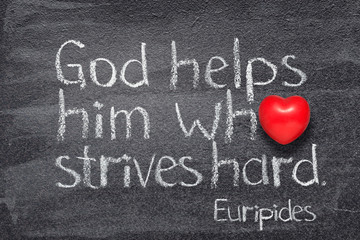 God helps
him wh
strives hard.
Euripides